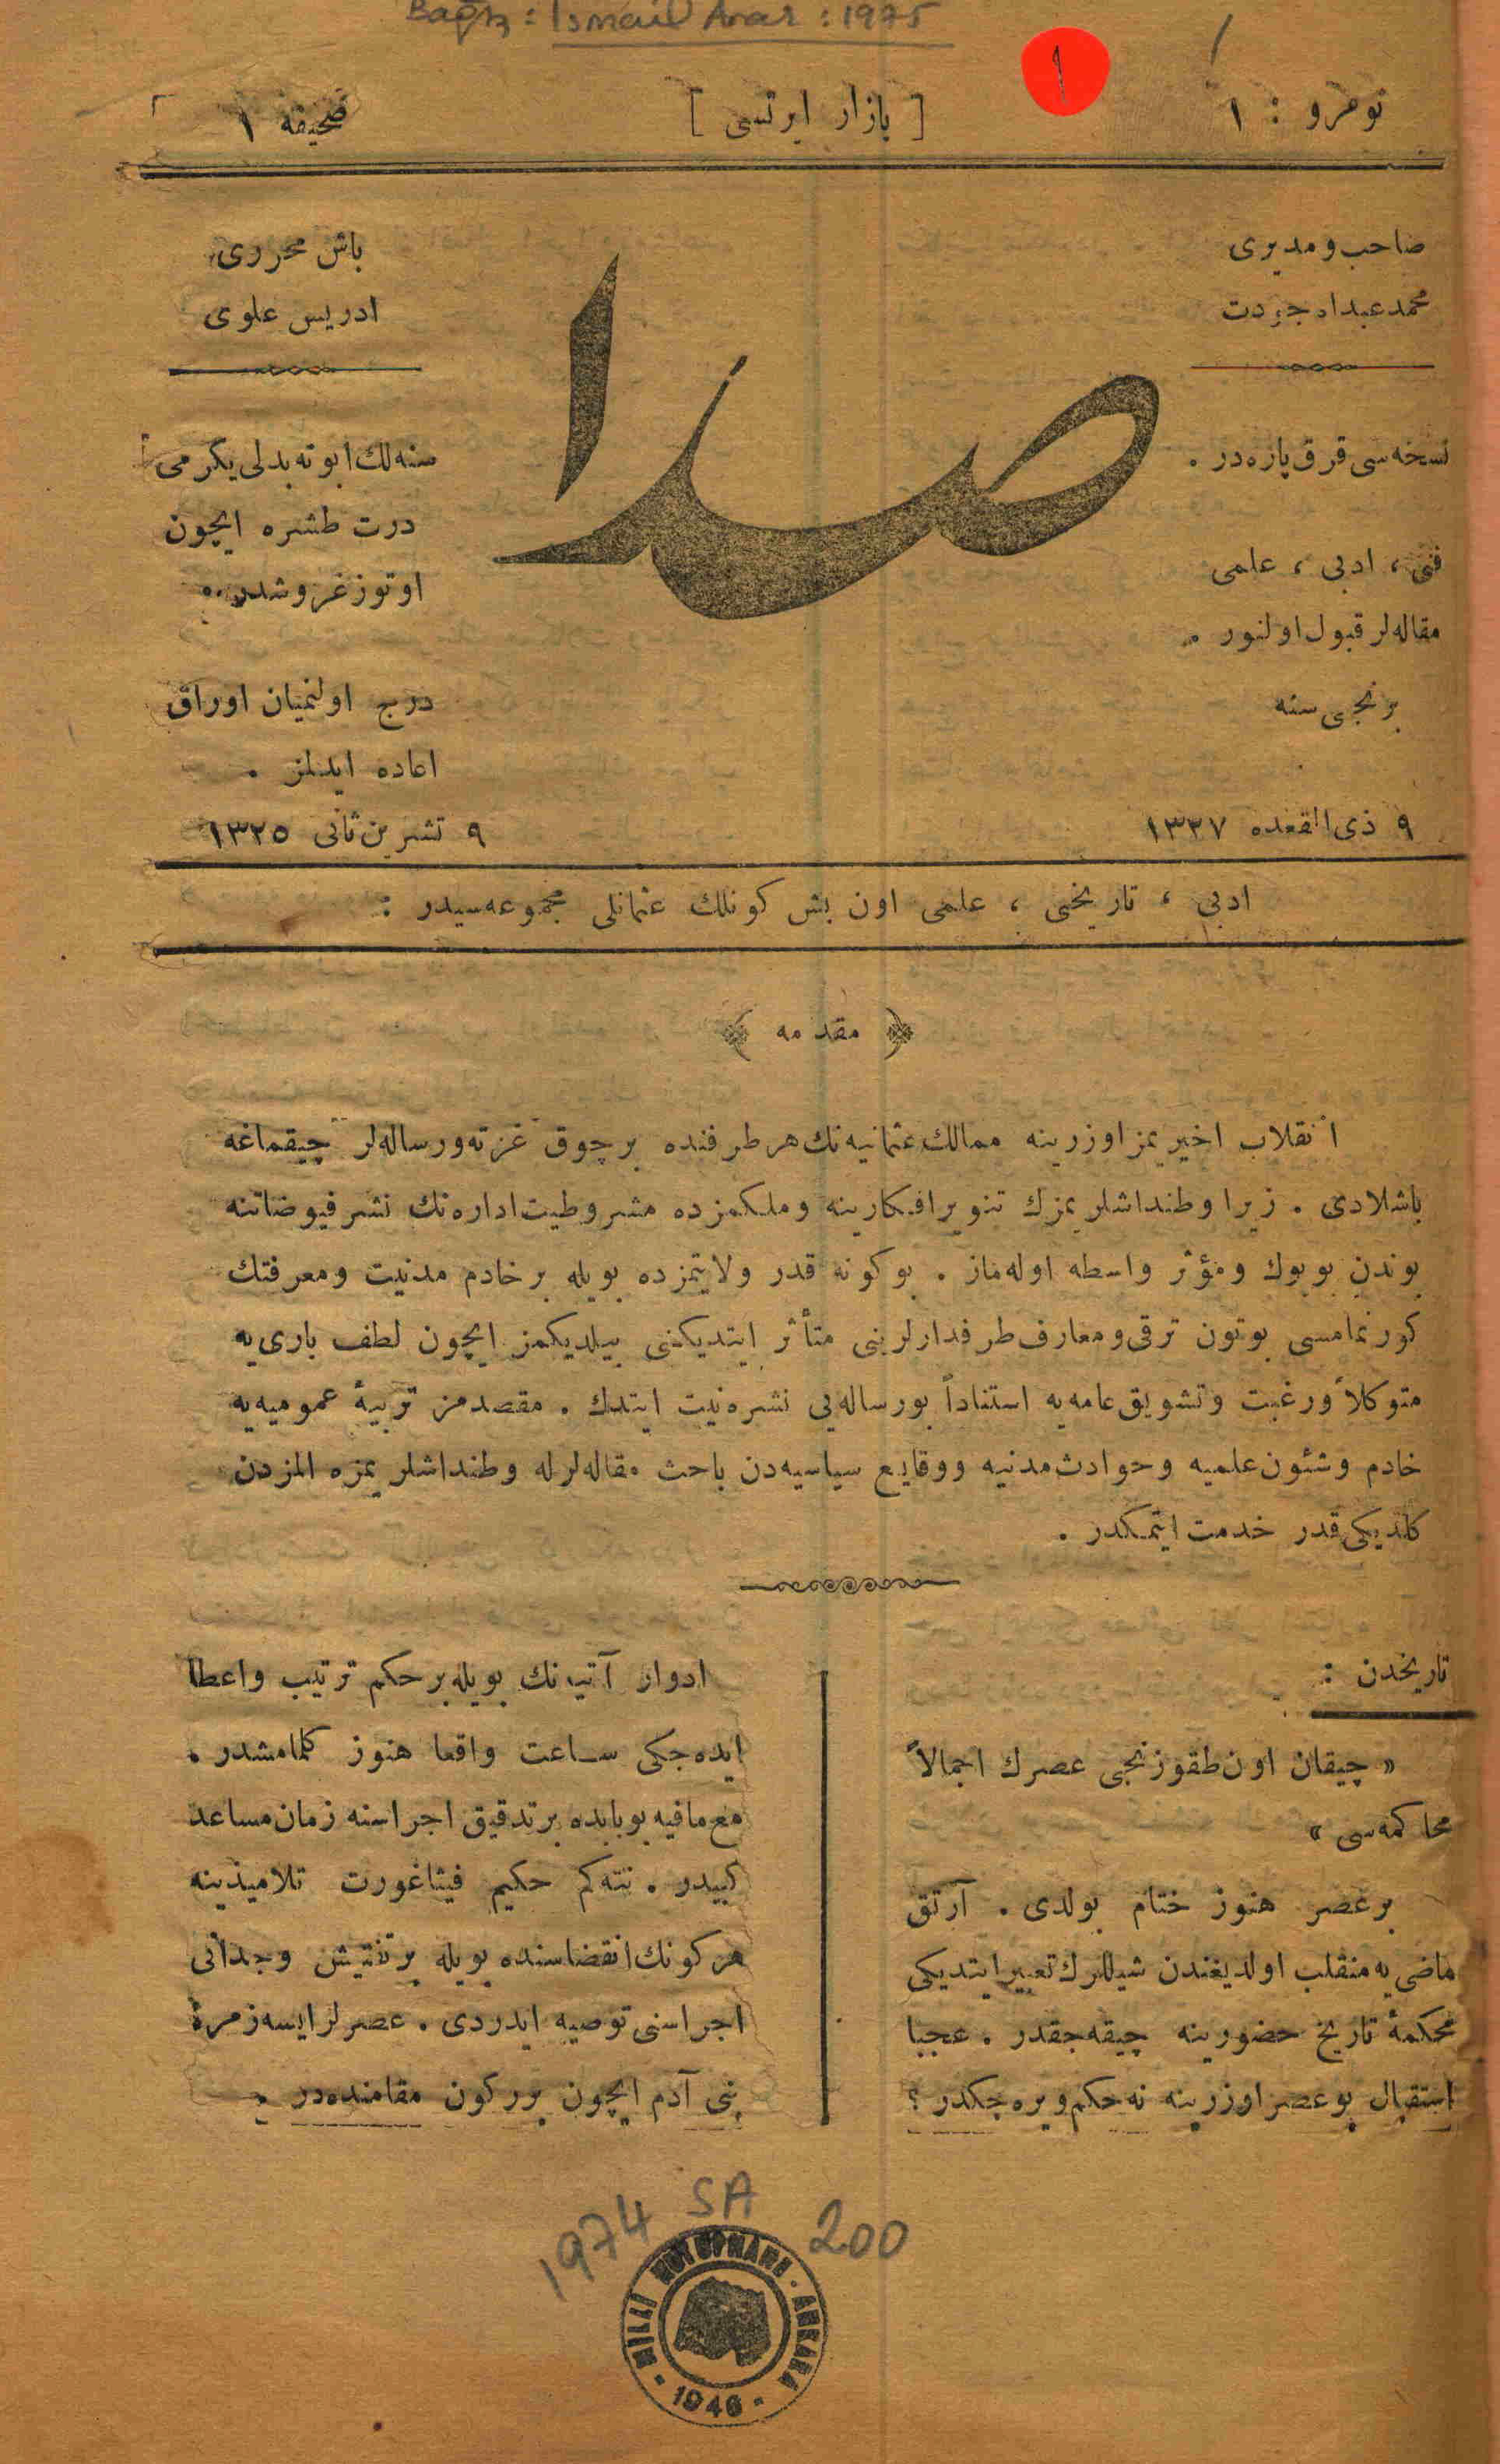 Bağış : Ismail Arar : 1975
نومرو : ١
[ بازار ايرتسى ]
صحيفه ١
١
صاحب و مديرى
محمد عبداد جودت
نسخه‌سى قرق پاره‌در .
فنى ، ادبى ، علمى
مقاله‌لر قبول اولنور .
برنجى سنه
٩ ذى القعده ١٣٢٧
صدا
باش محررى
ادريس علوى
سنه‌لك ابونه بدلى يكرمى
درت طشره ايچون
اوتوز غروشدر .
درج اولنميان اوراق
اعاده ايدلمز .
٩ تشرين ثانى ١٣٢٥
ادبى ، تاريخى ، علمى اون بش كونلك عثمانلى مجموعه‌سيدر :
﴿ مقدمه ﴾
انقلاب اخيريمز اوزرينه ممالك عثمانيه‌نك هر طرفنده برچوق غزته و رساله‌لر چيقماغه
باشلادى . زيرا وطنداشلريمزك تنوير افكارينه و ملكمزده مشروطيت اداره‌نك نشر فيوضاتنه
بوندن بويوك و مؤثر واسطه اوله‌ماز . بو كونه قدر ولايتمزده بويله بر خادم مدنيت و معرفتك
كورنمامسى بوتون ترقى و معارف طرفدارلرينى متأثر ايتديكنى بيلديكمز ايچون لطف بارى‌يه
متوكلاً و رغبت و تشويق عامه‌يه استناداً بو رساله‌يى نشره نيت ايتدك . مقصدمز تربيۀ عموميه‌يه
خادم و شئون علميه و حوادث مدنيه و وقايع سياسيه‌دن باحث مقاله‌لرله وطنداشلريمزه المزدن
كلديكى قدر خدمت ايتمكدر .
تاريخدن :
« چيقان اون طقوزنجى عصرك اجمالاً
محاكمه‌سى »
بر عصر هنوز ختام بولدى . آرتق
ماضى‌يه منقلب اولديغندن شيللرك تعبير ايتديكى
محكمۀ تاريخ حضورينه چيقه‌جقدر . عجبا
استقبال بو عصر اوزرينه نه حكم ويره‌جكدر ؟
ادوار آتيه‌نك بويله بر حكم ترتيب و اعطا
ايده‌جكى ساعت واقعا هنوز كلمامشدر .
مع مافيه بو بابده بر تدقيق اجراسنه زمان مساعد
كبيدر . نته‌كم حكيم فيثاغورت تلاميذينه
هر كونك انقضاسنده بويله بر تفتيش وجدانى
اجراسنى توصيه ايدردى . عصرلر ايسه زمرۀ
بنى آدم ايچون برر كون مقامنده‌در .
1974 SA 200
MİLLİ KÜTÜPHANE · ANKARA
· 1946 ·